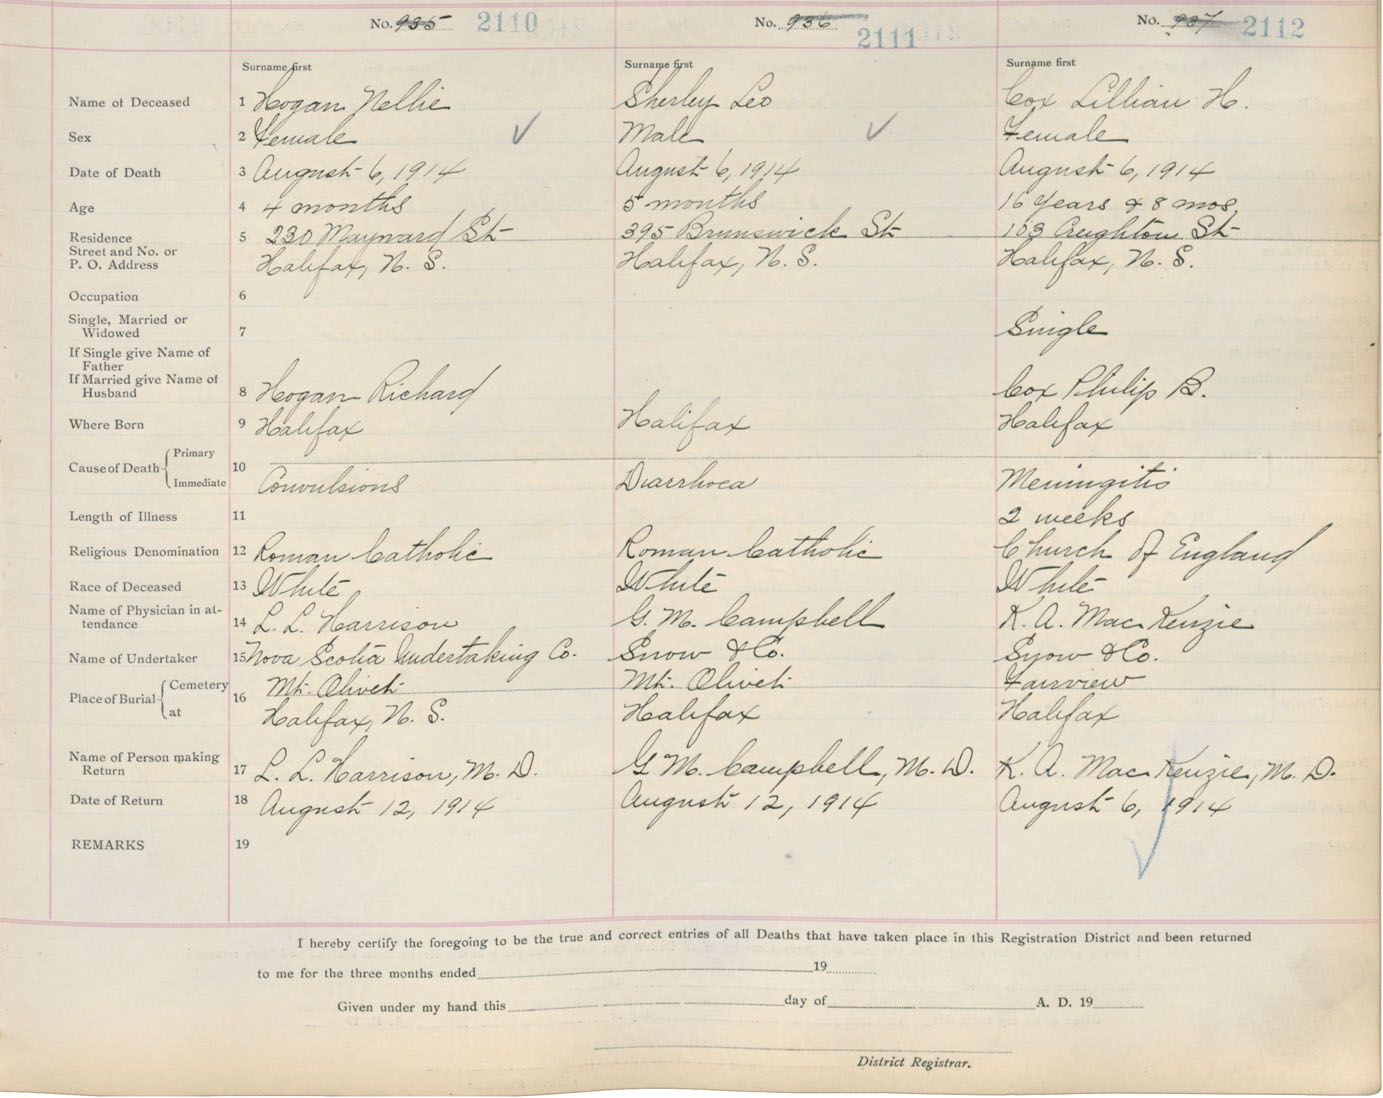 No. 935 2110 No. 936 2111 No. 937 2112
Surname first Surname first Surname first
Name of Deceased 1 Hogan Nellie Sherley Leo Cox Lillian H.
Sex 2 Female Male Female
Date of Death 3 August 6, 1914 August 6, 1914 August 6, 1914
Age 4 4 months 5 months 16 years & 8 mos.
Residence 5 230 Maynard St 395 Brunswick St 103 Creighton St
Street and No. or
P. O. Address Halifax, N. S. Halifax, N. S. Halifax, N. S.
Occupation 6
Single, Married or
Widowed 7 Single
If Single give Name of
Father
If Married give Name of
Husband 8 Hogan Richard Cox Philip B.
Where Born 9 Halifax Halifax Halifax
Primary
Cause of Death 10
Immediate Convulsions Diarrhoea Meningitis
Length of Illness 11 2 weeks
Religious Denomination 12 Roman Catholic Roman Catholic Church of England
Race of Deceased 13 White White White
Name of Physician in at-
tendance 14 L. L. Harrison G. M. Campbell K. A. MacKenzie
Name of Undertaker 15 Nova Scotia Undertaking Co. Snow & Co. Snow & Co.
Cemetery Mt. Olivet Mt. Olivet Fairview
Place of Burial 16
at Halifax, N. S. Halifax Halifax
Name of Person making
Return 17 L. L. Harrison, M. D. G. M. Campbell, M. D. K. A. MacKenzie, M. D.
Date of Return 18 August 12, 1914 August 12, 1914 August 6, 1914
REMARKS 19
I hereby certify the foregoing to be the true and correct entries of all Deaths that have taken place in this Registration District and been returned
to me for the three months ended 19
Given under my hand this day of A. D. 19
District Registrar.